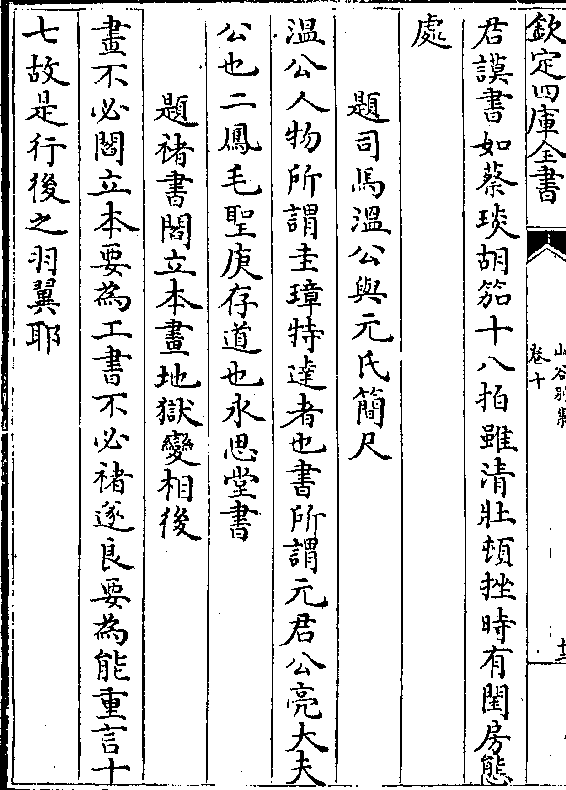 欽定四庫全書
卷十
君謨書如蔡琰胡笳十八拍雖清壯頓挫時有閨房態
處
題司馬溫公與元氏簡尺
溫公人物所謂圭璋特達者也書所謂元君公亮大夫
公也二鳳毛聖庾存道也永思堂書
題禇書閻立本畫地獄變相後
畫不必閻立本要為工書不必禇遂良要為能重言十
七故是行後之羽翼耶